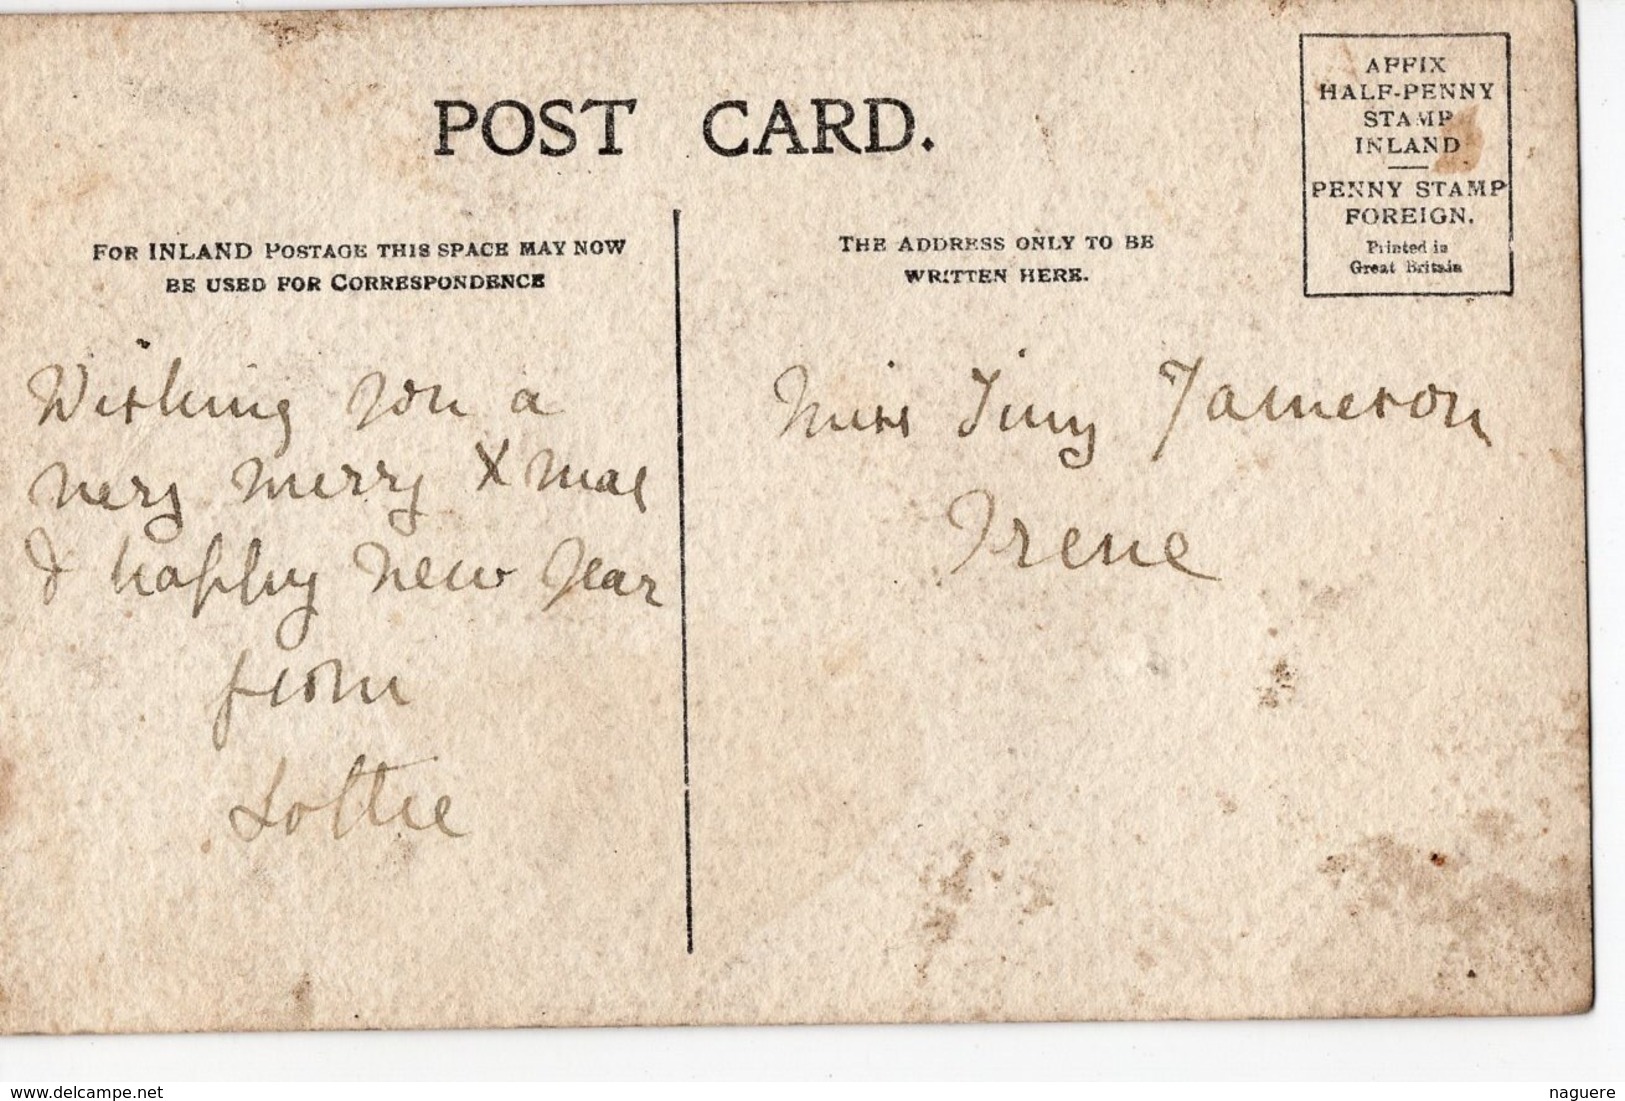 POST CARD.
AFFIX
HALF-PENNY
STAMP
INLAND
PENNY STAMP
FOREIGN.
Printed in
Great Britain
FOR INLAND POSTAGE THIS SPACE MAY NOW
BE USED FOR CORRESPONDENCE
THE ADDRESS ONLY TO BE
WRITTEN HERE.
Wishing you a
very merry Xmas
& happy New Year
from
Lottie
Miss Tiny Jameson
Irene
delcampe.net
naguere